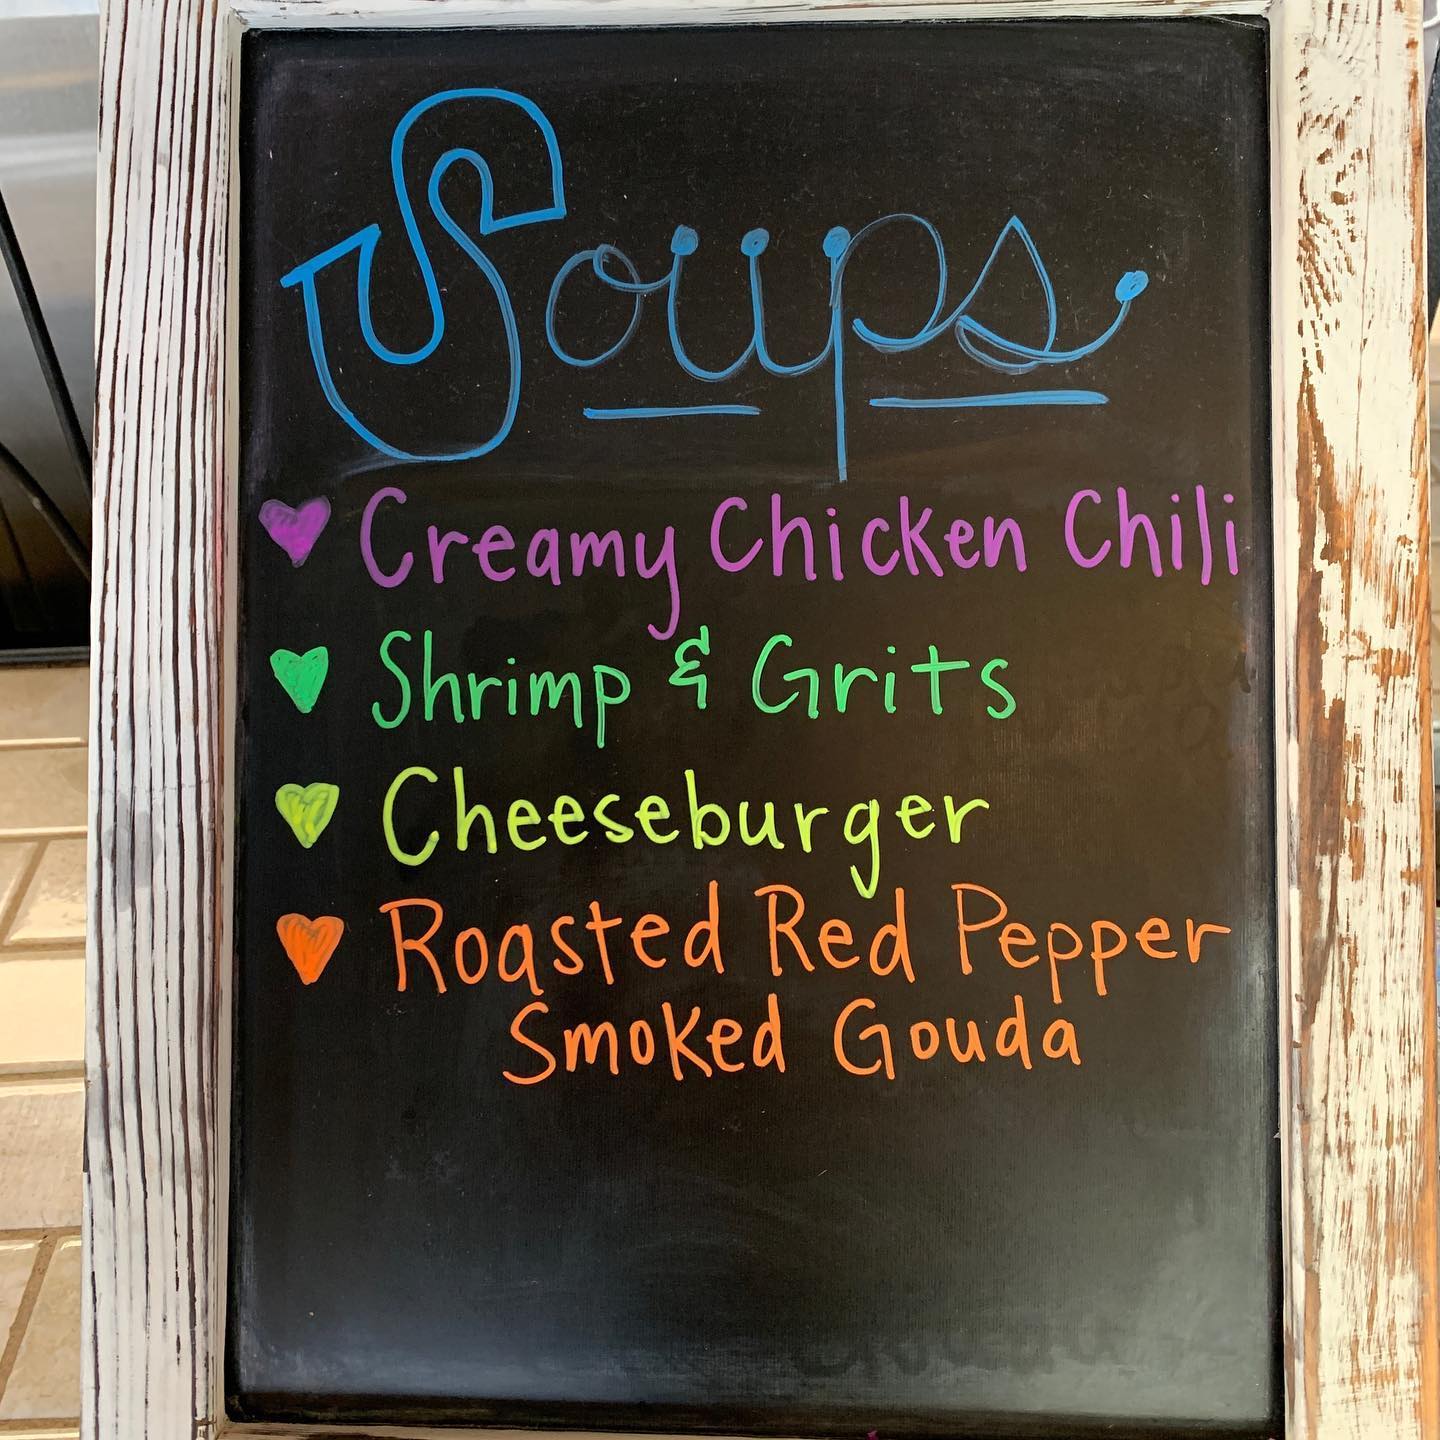 Soups
Creamy Chicken Chili
Shrimp & Grits
Cheeseburger
Roasted Red Pepper
Smoked Gouda